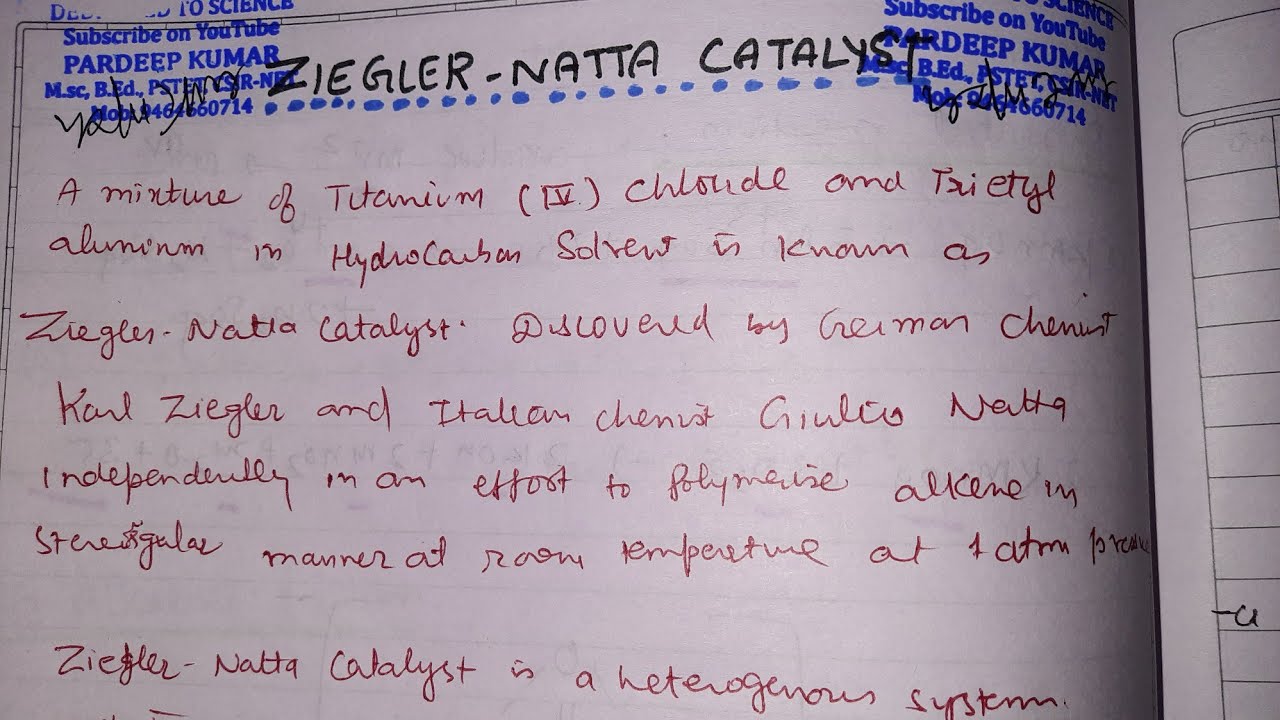 TO SCIENCE
Subscribe on YouTube
PARDEEP KUMAR
M.sc, B.Ed., PSTET,
Mob: 9464660714
SCIENCE
Subscribe on YouTube
PARDEEP KUMAR
M.sc, B.Ed., PSTET, CSIR-NET
Mob: 9464660714
ZIEGLER-NATTA CATALYST
A mixture of Titanium (IV) chloride and Trietyl
aluminm in HydroCarbon Solvent is known as
Ziegler-Natta Catalyst. Discovered by German chemist
Karl Ziegler and Italian chemist Giulio Natta
independently in an effort to Polymerise alkene in
manner at room temperture at 1 atm
Ziegler-Natta Catalyst is a heterogenous system.
-Cl